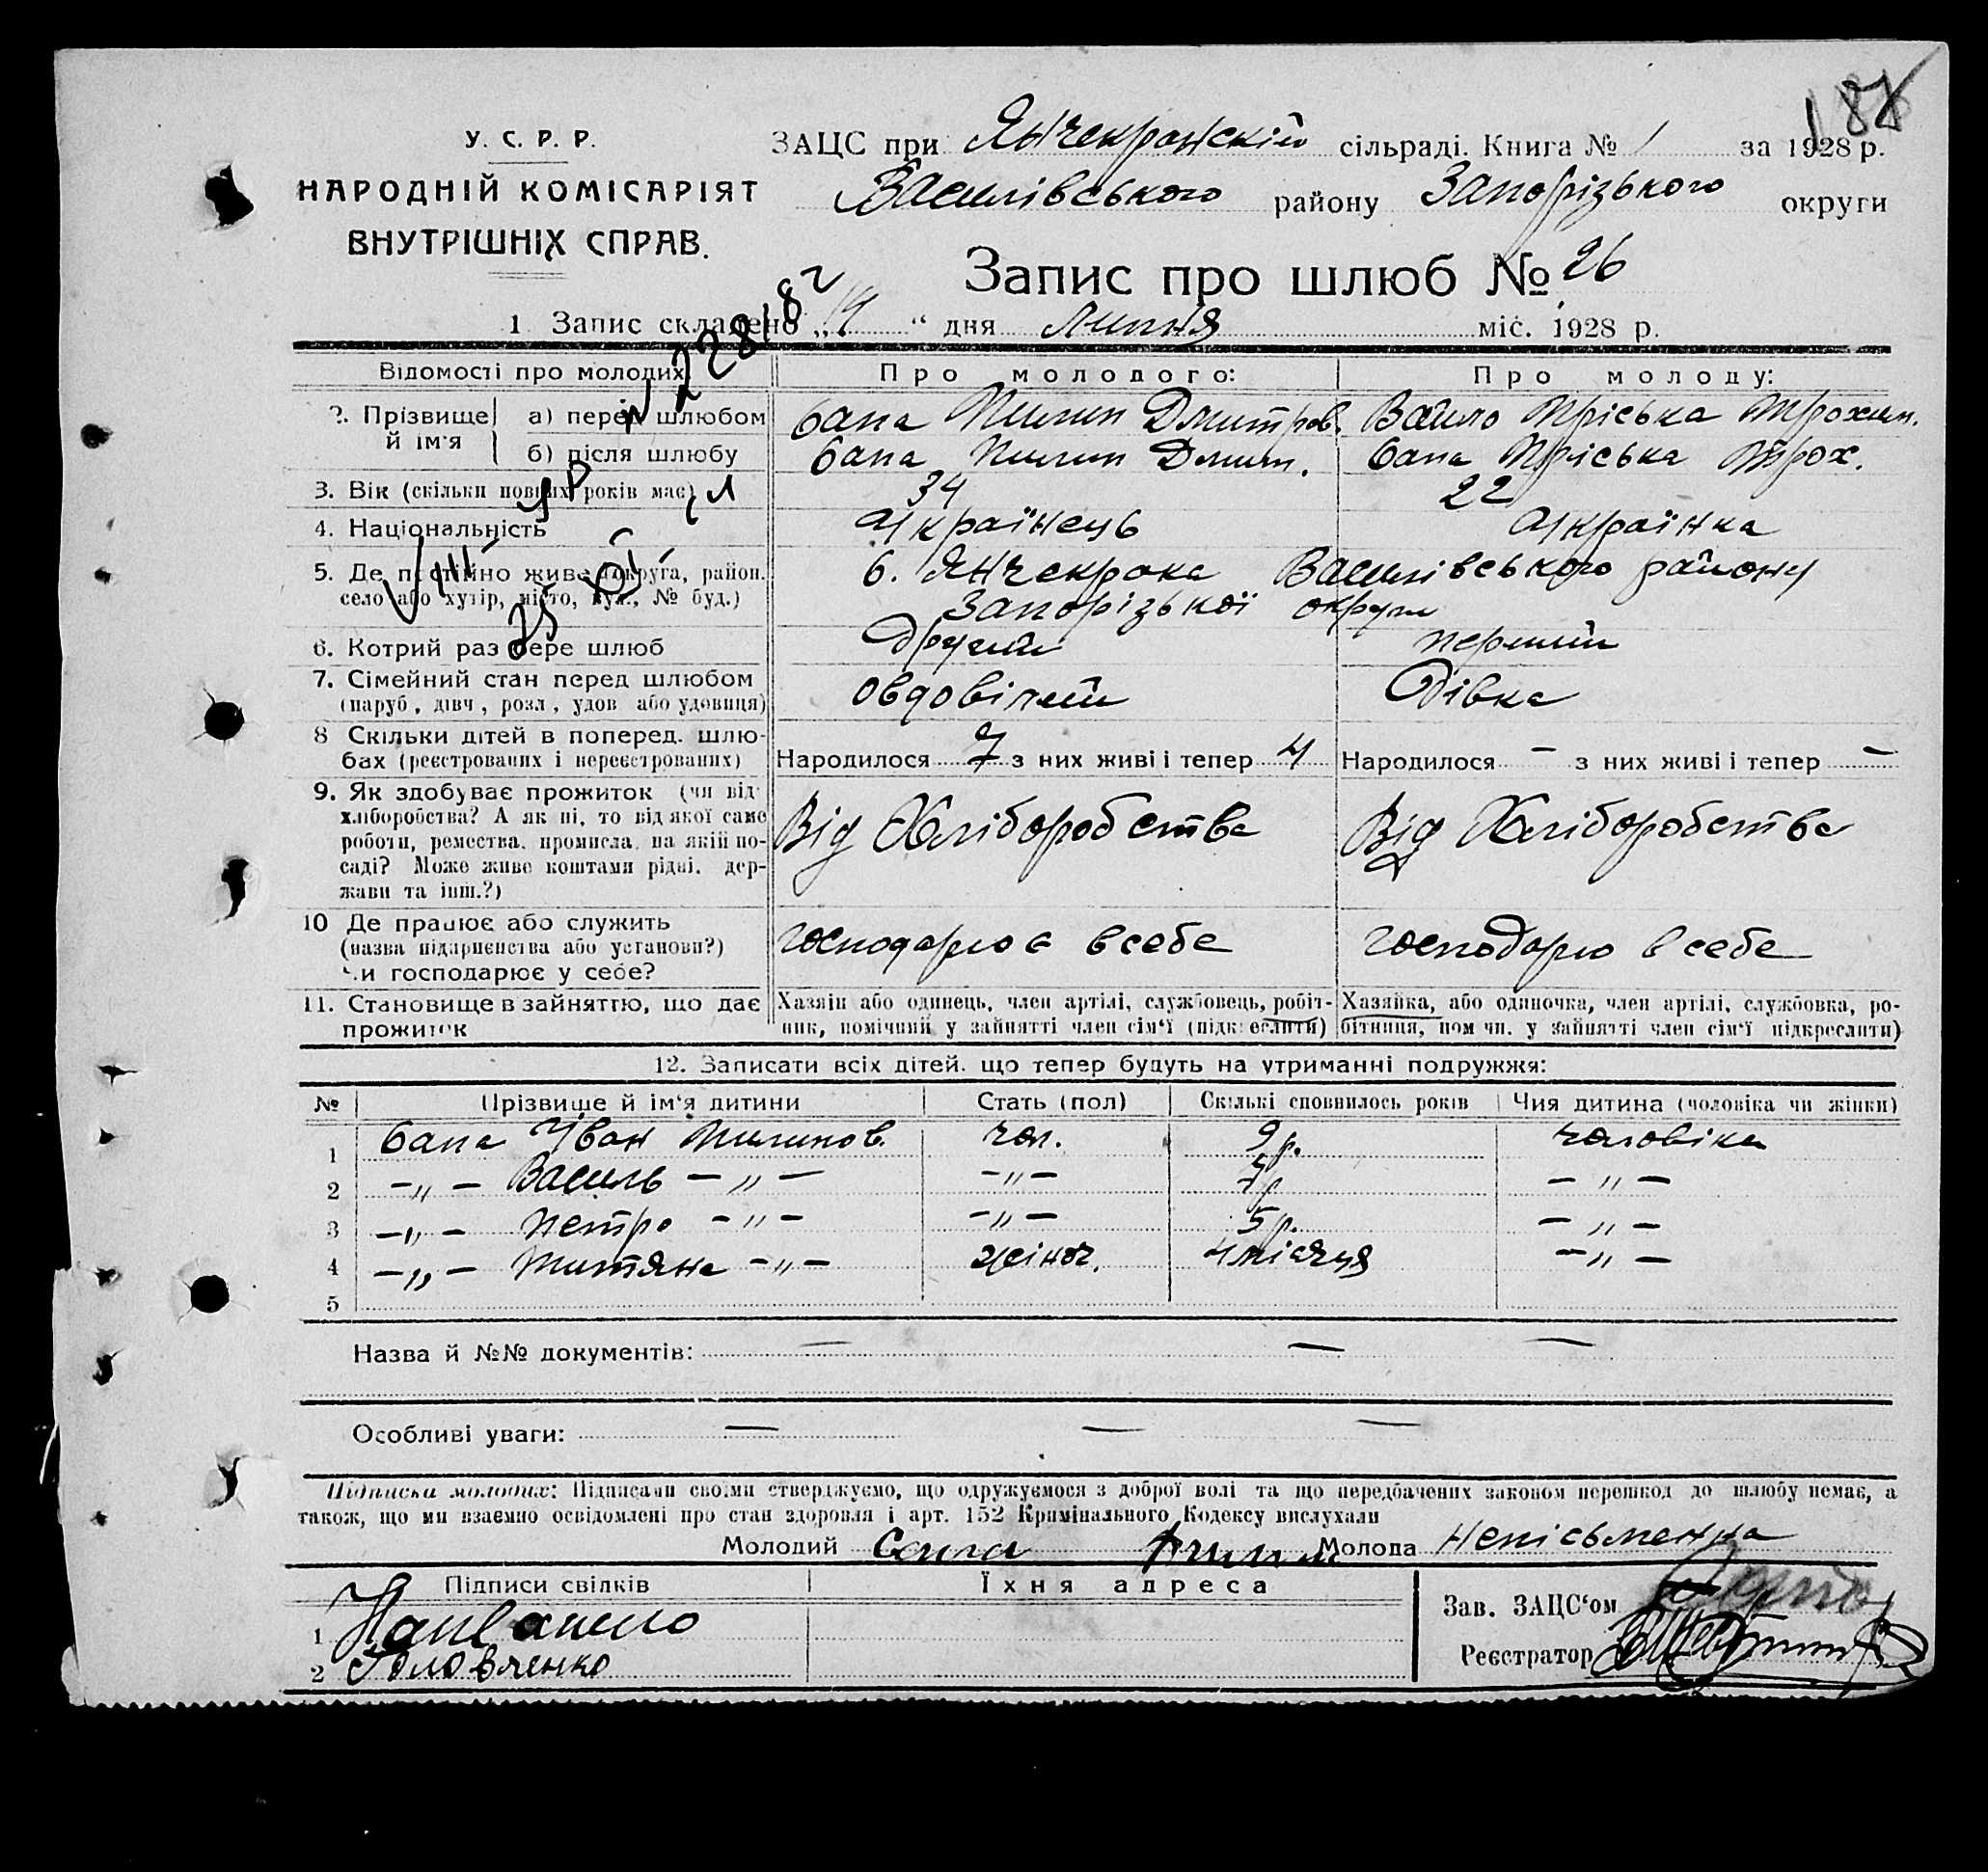 У. С. Р. Р.
НАРОДНІЙ КОМІСАРІЯТ
ВНУТРІШНІХ СПРАВ.
ЗАЦС при Янчекракскій сільраді. Книга № 1 за 1928 р.
Василівського району Запорізького округи
Запис про шлюб № 26
1 Запис складено „ “ дня Липня міс. 1928 р.
Відомості про молодих
Про молодого:
Про молоду:
2. Прізвище й ім'я
а) перед шлюбом
Сапа Пилип Дмитров.
Вайло Пріська Трохим.
б) після шлюбу
Сапа Пилип Дмит.
Сапа Пріська Трох.
3. Вік (скільки повних років має)
34
22
4. Національність
Українець
Українка
5. Де постійно живе (округа, район.
село або хутір, місто, вул., № буд.)
с. Янчекрака Василівського району
Запорізької округи
6. Котрий раз бере шлюб
Другий
перший
7. Сімейний стан перед шлюбом
(паруб, дівч, розл, удов або удовиця)
овдовілий
Дівка
8 Скільки дітей в поперед. шлю-
бах (реєстрованих і нереєстрованих)
Народилося 7 з них живі і тепер 4
Народилося — з них живі і тепер —
9. Як здобуває прожиток (чи від
хліборобства? А як ні, то від якої само
роботи, ремества, промисла, на якій по-
саді? Може живе коштами рідні, дер-
жави та інш.?)
Від Хліборобства
Від Хліборобства
10 Де працює або служить
(назва підприємства або установи?)
чи господарює у себе?
господарює в себе
господарю в себе
11. Становище в зайняттю, що дає
прожиток
Хазяїн або одинець, член артілі, службовець, робіт-
ник, помічний у зайнятті член сім'ї (підкреслити)
Хазяйка, або одиночка, член артілі, службовка, ро-
бітниця, помічн. у зайнятті член сім'ї підкреслити)
12. Записати всіх дітей, що тепер будуть на утриманні подружжя:
№ Прізвище й ім'я дитини Стать (пол) Скількі сповнилось років Чия дитина (чоловіка чи жінки)
1 Сапа Іван Пилипов. чол. 9 р. чоловіка
2 —„— Василь —„— —„— 7 р —„—
3 —„— Петро —„— —„— 5 р. —„—
4 —„— Титяна —„— жіноч. 4 місяця —„—
5
Назва й №№ документів: — — —
Особливі уваги: — — —
Підписка молодих: Підписами своїми стверджуємо, що одружуємося з доброї волі та що передбачених законом перешкод до шлюбу немає, а
також, що ми взаємно освідомлені про стан здоровля і арт. 152 Кримінального Кодексу вислухали
Молодий Сапа Молода непісьменна
Підписи свідків
Їхня адреса
Зав. ЗАЦС'ом
1
2 Головченко
Реєстратор